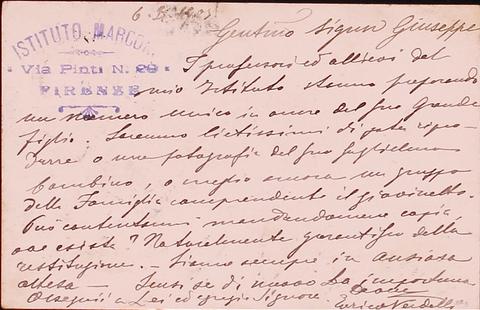 6
ISTITUTO MARCONI
Via Pinti N. 29
FIRENZE
Gentmo Signor Giuseppe
I professori ed allievi del
mio Istituto stanno preparando
un numero unico in onore del suo grande
figlio. Saremmo lietissimi di poter ripro-
durre o una fotografia del suo Guglielmo
bambino, o meglio ancora un gruppo
della Famiglia comprendente il giovinetto.
Può contentarmi mandandomene copia,
se esiste? Naturalmente garantisco della
restituzione. - Siamo sempre in ansiosa
attesa - Scusi se di nuovo La importuna
Ossequi a Lei ed egregio Signore.
Enrico